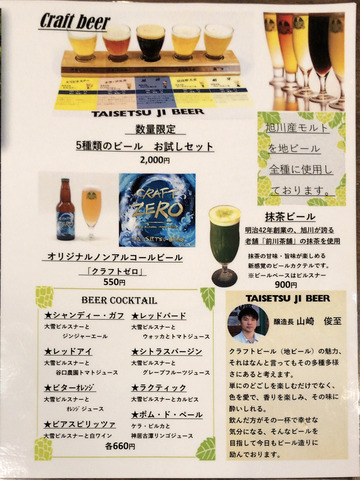 Craft beer
TAISETSU JI BEER
数量限定
5種類のビール お試しセット
2,000円
旭川産モルト
を地ビール
全種に使用し
ております。
CRAFT
ZERO
オリジナルノンアルコールビール
「クラフトゼロ」
550円
抹茶ビール
明治42年創業の、旭川が誇る
老舗「前川茶舗」の抹茶を使用
抹茶の甘味・旨味が楽しめる
新感覚のビールカクテルです。
※ビールベースはピルスナー
900円
BEER COCKTAIL
★シャンディー・ガフ
大雪ピルスナーと
ジンジャーエール
★レッドバード
大雪ピルスナーと
ウォッカとトマトジュース
★レッドアイ
大雪ピルスナーと
谷口農園トマトジュース
★シトラスバージン
大雪ピルスナーと
グレープフルーツジュース
★ビターオレンジ
大雪ピルスナーと
オレンジジュース
★ラクティック
大雪ピルスナーとカルピス
★ビアスピリッツァ
大雪ピルスナーと白ワイン
★ポム・ド・ペール
ケラ・ピルカと
神居古潭リンゴジュース
各660円
TAISETSU JI BEER
醸造長 山崎 俊至
クラフトビール（地ビール）の魅力、
それはなんと言ってもその多種多様
さにあると考えます。
単にのどごしを楽しむだけでなく、
色を愛で、香りを楽しみ、その味に
酔いしれる。
飲んだ方がその一杯で幸せな
気分になる、そんなビールを
目指して今日もビール造りに
励んでおります。